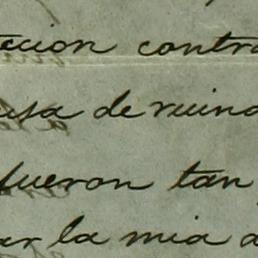 ccion contra
usa de ruina
fueron tan
ar la mia a